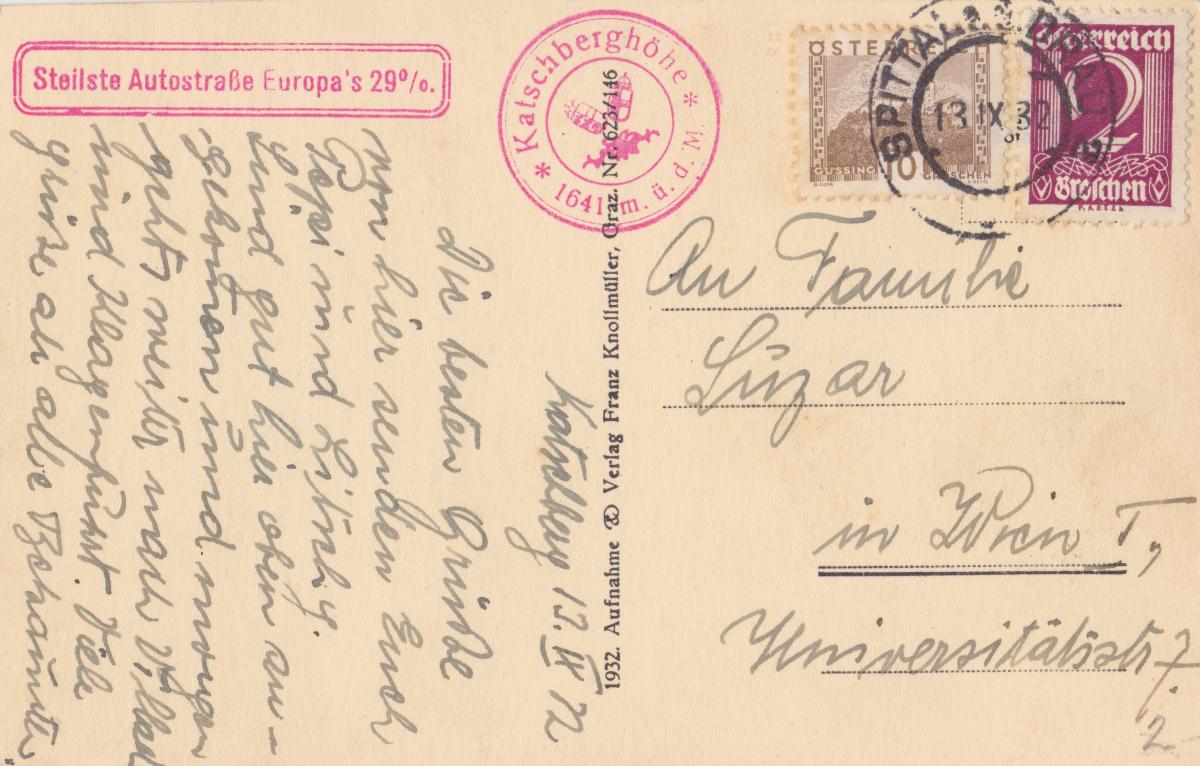 Steilste Autostraße Europa's 29%.
* Katschberghöhe *
1641 m. ü. d. M.
ÖSTERRE
GÜSSING 10 GROSCHEN
Österreich
2
Groschen
SPITTAL a.d. DRAU
13 IX 32
1932. Aufnahme & Verlag Franz Knollmüller, Graz. Nr. 623/146
Katschberg 13. IX 32
Die besten Grüße
von hier senden Euch
Pepi und
Sind gut hier oben an-
gekommen und morgen
geht's weiter nach Villach
und Klagenfurt Viele
Grüße an alle Bekannten
An Familie
Luzar
in Wien I,
Universitätsstr 7.
2